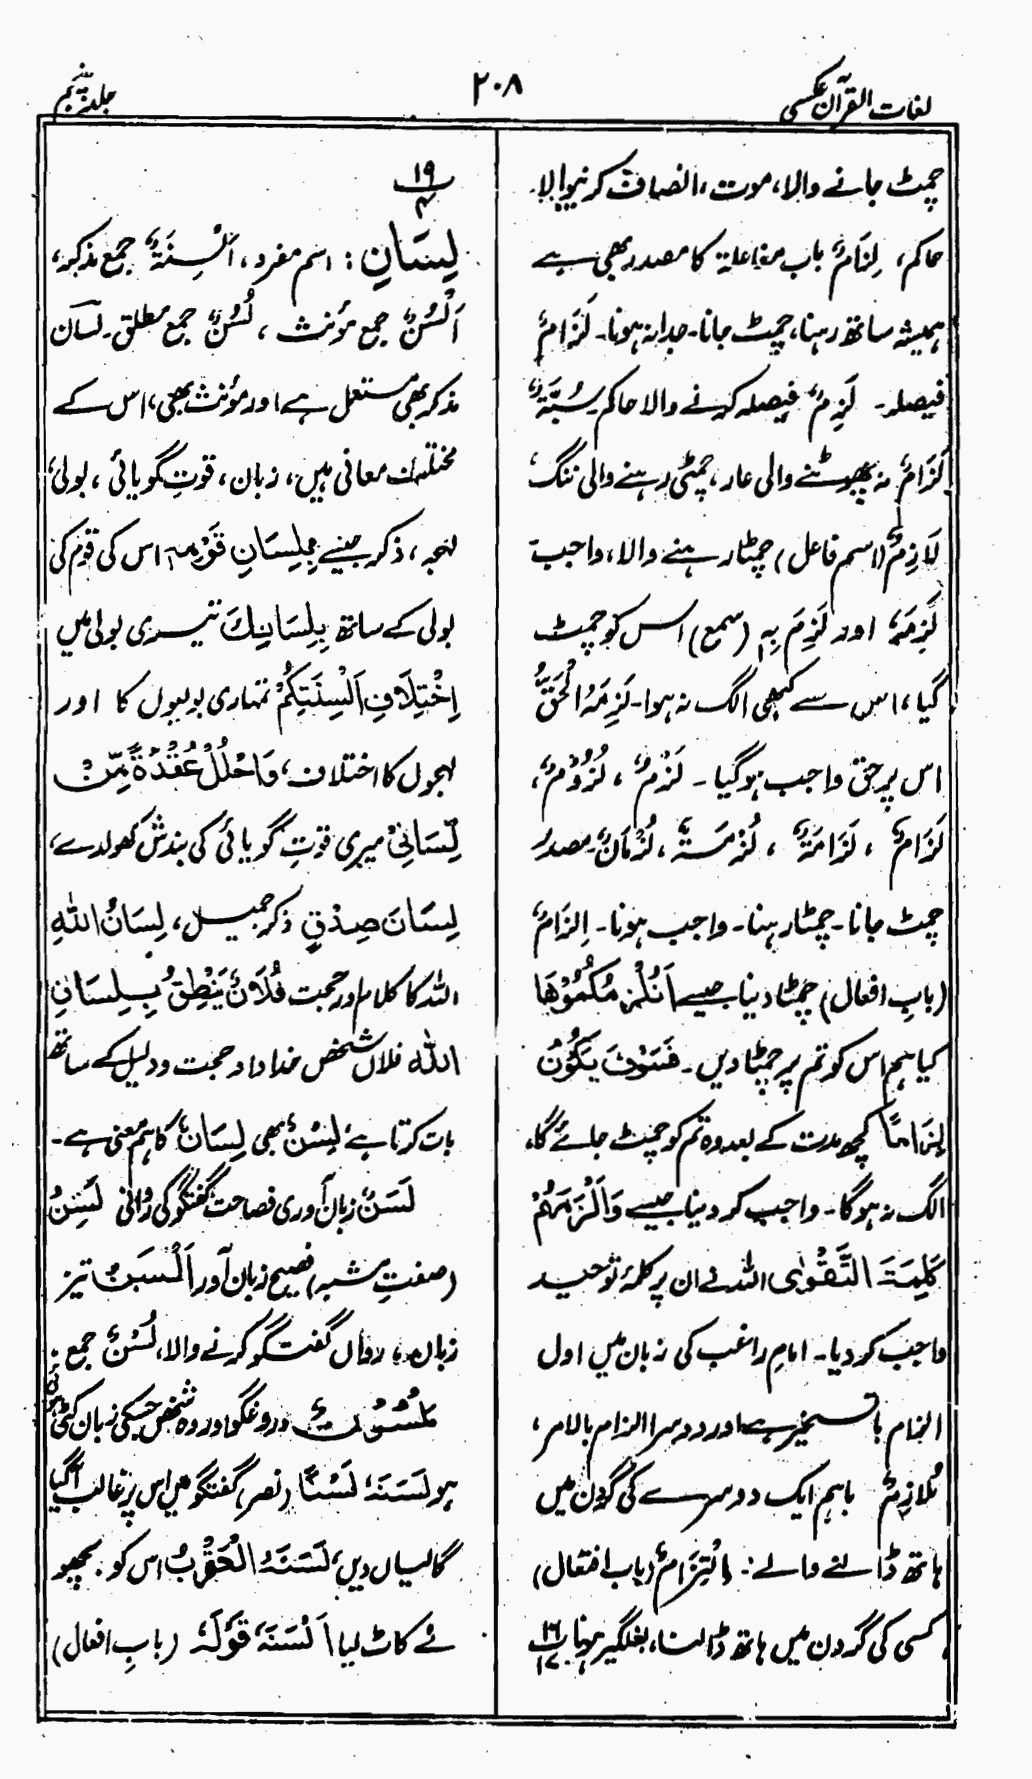 لغات القرآن عکسی
۲۰۸
جلد پنجم
چمٹ جانے والا، موت، انصاف کرنیوالا۔
حاکم، لِزَامٌ باب مفاعلۃ کا مصدر بھی ہے
ہمیشہ ساتھ رہنا، چمٹ جانا۔ جدا نہ ہونا۔ لَزَامٌ
فیصلہ۔ لَزِمٌ فیصلہ کرنے والا حاکم۔ سُبَّۃٌ
لَزَامٌ نہ چھوٹنے والی عار، چمٹی رہنے والی ننگ
لَازِمٌ (اسم فاعل) چمٹا رہنے والا، واجب
لَزِمَہٗ اور لَزِمَ بِہٖ (سمع) اس کو چمٹ
گیا، اس سے کبھی الگ نہ ہوا۔ لَزِمَہُ الْحَقُّ
اس پر حق واجب ہوگیا۔ لَزْمٌ، لُزُوْمٌ،
لَزَامٌ، لَزَامَۃٌ، لُزْمَۃٌ، لُزْمَانٌ۔ مصدر
چمٹ جانا۔ چمٹا رہنا۔ واجب ہونا۔ اِلزَامٌ
(بابِ افعال) چمٹا دینا جیسے اَنُلْزِمُكُمُوْهَا
کیا ہم اس کو تم پر چمٹا دیں۔ فَسَوْفَ يَكُوْنُ
لِزَامًا کچھ مدت کے بعد وہ تم کو چمٹ جائے گا،
الگ نہ ہوگا۔ واجب کر دینا جیسے وَاَلْزَمَهُمْ
كَلِمَةَ التَّقْوٰى اللہ نے ان پر کلمۂ توحید
واجب کر دیا۔ امام راغب کی زبان میں اول
الزام بالتسخیر ہے اور دوسرا الزام بالامر،
مُلَازِمٌ باہم ایک دوسرے کی گردن میں
ہاتھ ڈالنے والے۔ اِلْتِزَامٌ (باب افتعال)
کسی کی گردن میں ہاتھ ڈالنا، بغلگیر ہونا ۱۶ ۱۷
۱۹
لِسَانِ: اسم مفرد، اَلْسِنَۃٌ جمع مذکر،
اَلْسُنٌ جمع مؤنث، لُسُنٌ جمع مطلق۔ لسان
مذکر بھی مستعمل ہے اور مؤنث بھی، اس کے
مختلف معانی ہیں، زبان، قوتِ گویائی، بولی،
لہجہ، ذکر جیسے بِلِسَانِ قَوْمِہٖ اس کی قوم کی
بولی کے ساتھ بِلِسَانِكَ تیری بولی میں
اِخْتِلَافِ اَلْسِنَتِكُمْ تمہاری بولیوں کا اور
لہجوں کا اختلاف، وَاحْلُلْ عُقْدَةً مِّنْ
لِّسَانِيْ میری قوتِ گویائی کی بندش کھولدے،
لِسَانَ صِدْقٍ ذکر جمیل، لِسَانُ اللّٰهِ
اللہ کا کلام اور حجت فُلَانٌ يَنْطِقُ بِلِسَانِ
اللّٰهِ فلاں شخص خدا داد حجت و دلیل کے ساتھ
بات کرتا ہے، لِسْنٌ بھی لِسَانٌ کا ہم معنی ہے۔
لَسَنٌ زبان آوری فصاحت گفتگو کی روانی لَسِنٌ
(صفتِ مشبہ) فصیح زبان آور اَلْسَنُ تیز
زبان، رواں گفتگو کرنے والا، لُسْنٌ جمع۔
مَلْسُوْنٌ دروغگو اور وہ شخص جسکی زبان کٹی ہوئی
ہو لَسَنَہٗ لَسْنًا (نصر) گفتگو میں اس پر غالب آگیا
گالیاں دیں، لَسَنَہُ الْعَقْرَبُ اس کو بچھو
نے کاٹ لیا اَلْسَنَہٗ قَوْلَہٗ (بابِ افعال)